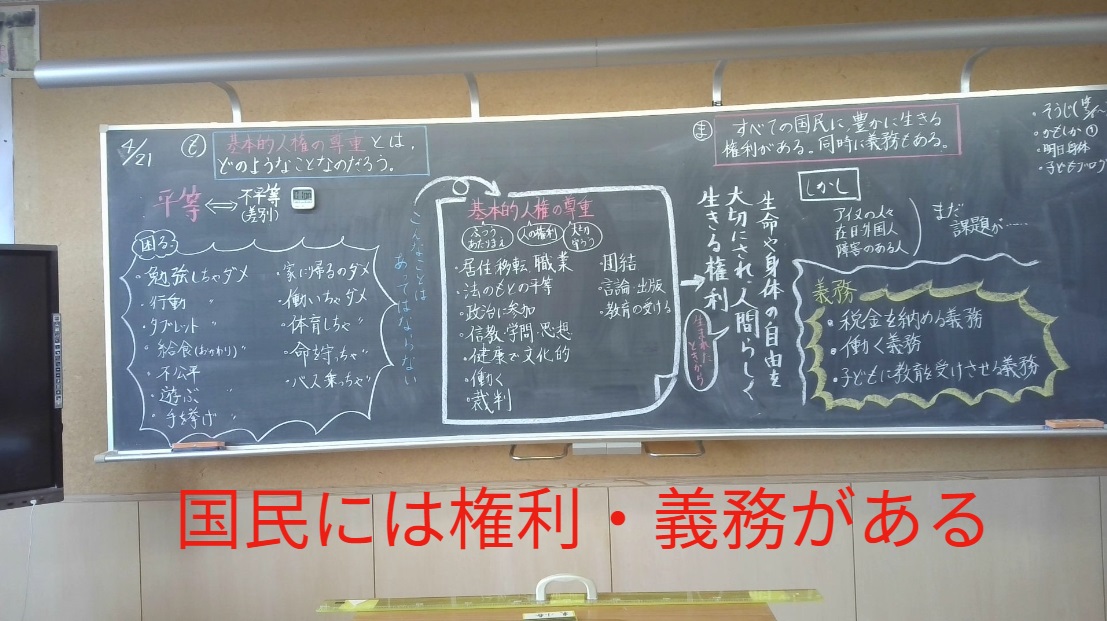 4/21
も
基本的人権の尊重とは、
どのようなことなのだろう。
平等 ⇔ 不平等
(差別)
困るぅ
・勉強しちゃダメ
・行動 〃
・タブレット 〃
・給食(おかわり)〃
・不公平
・遊ぶ
・手を挙げ 〃
・家に帰るのダメ
・働いちゃダメ
・体育しちゃ〃
・命を守っちゃ〃
・バス乗っちゃ〃
こんなことは
あってはならない
基本的人権の尊重
ふつう
あたりまえ
人の権利
・居住、移転、職業
・法のもとの平等
・政治に参加
・信教・学問・思想
・健康で文化的
・働く
・裁判
・団結
・言論・出版
・教育の受ける
生命や身体の自由を
大切にされ、人間らしく
生きる権利
生まれた
ときから
ま
すべての国民に、豊かに生きる
権利がある。同時に義務もある。
しかし
アイヌの人々
在日外国人
障害のある人
まだ
課題が……
義務
・税金を納める義務
・働く義務
・子どもに教育を受けさせる義務
・そうじ
・かどしか①
・明日身体
国民には権利・義務がある